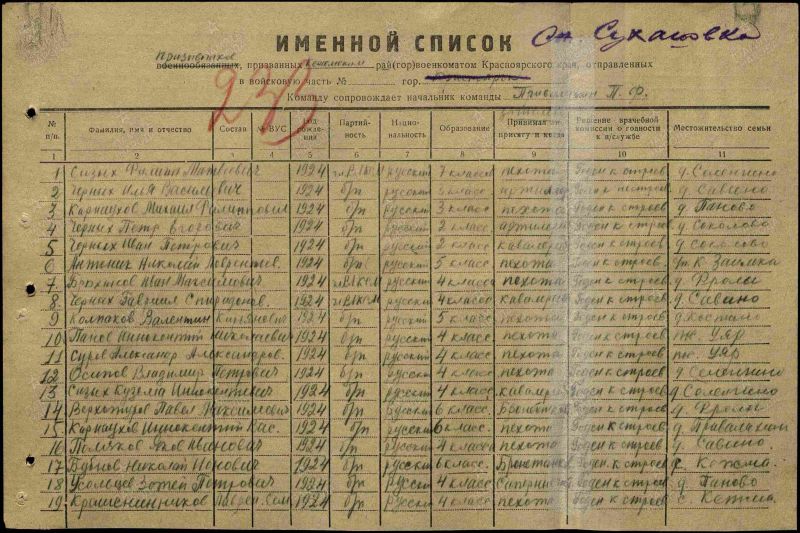 ИМЕННОЙ СПИСОК Ст. Сухановка
призывников
военнообязанных, призванных Кежемским рай(гор)военкоматом Красноярского края, отправленных
в войсковую часть № гор.
Команду сопровождает начальник команды П. Ф.
№ п/п. Фамилия, имя и отчество Состав № ВУС Год рождения Партийность Национальность Образование Принимал ли присягу и когда Решение врачебной комиссии о годности к в/службе Местожительство семьи
1 2 3 4 5 6 7 8 9 10 11
1 Сизых Филип Матвеевич 1924 чл ВЛКСМ русский 7 класса пехота Годен к строев д. Селенгино
2 Черных Илья Василевич 1924 б/п русский 3 класса артилер Годен к строев д. Савино
3 Карнаухов Михаил Филиппович 1924 б/п русский 3 класс пехота Годен к строев д. Паново
4 Черных Петр Егорович 1924 б/п русский 2 класс артилери Годен к строев д. Соколово
5 Черных Иван Петрович 1924 б/п русский 2 класс кавалери Годен к строев д. Соколово
6 Николай Лаврентьев 1924 б/п русский 5 класс пехота Годен к строев Заимка
7 Брюханов Иван Максимович 1924 чл ВЛКСМ русский 4 класса пехота Годен к строев д. Фролы
8 Черных Гавриил Спиридонов 1924 чл ВЛКСМ русский 4 класса кавалери Годен к строев д. Савино
9 Колпаков Валентин 1924 б/п русский 5 класс пехота Годен к строев
10 Панов Иннокентий Николаевич 1924 б/п русский 4 класс пехота Годен к строев пж. Уяр
11 Суров Александр Александров. 1924 б/п русский 4 класс. пехота Годен к строев пж. Уяр
12 Осипов Владимир Петрович 1924 б/п русский 4 класс. пехота Годен к строев д. Селенгино
13 Сизых Кузема Иннокентиевич 1924 б/п русский 4 класс. кавалери Годен к строев д. Селенгино
14 Верхотуров Павел Максимович 1924 б/п русский 6 класс. Годен к строев д. Фролы
15 Карнаухов Иннокентий Вас. 1924 б/п русский 6 класс. пехота Годен к строев д.
16 Поляков Яков Иванович 1924 б/п русский 4 класса пехота Годен к строев д. Савино
17 Бубнов Николай Ионович 1924 б/п русский 6 класс. Годен к строев с. Кежма
18 Усольцев Петрович 1924 б/п русский 4 класс Годен к строев д. Паново
19 Крашенинников Лаврен. Сем. 1924 б/п русский 4 класс пехота Годен к строев с. Кежма